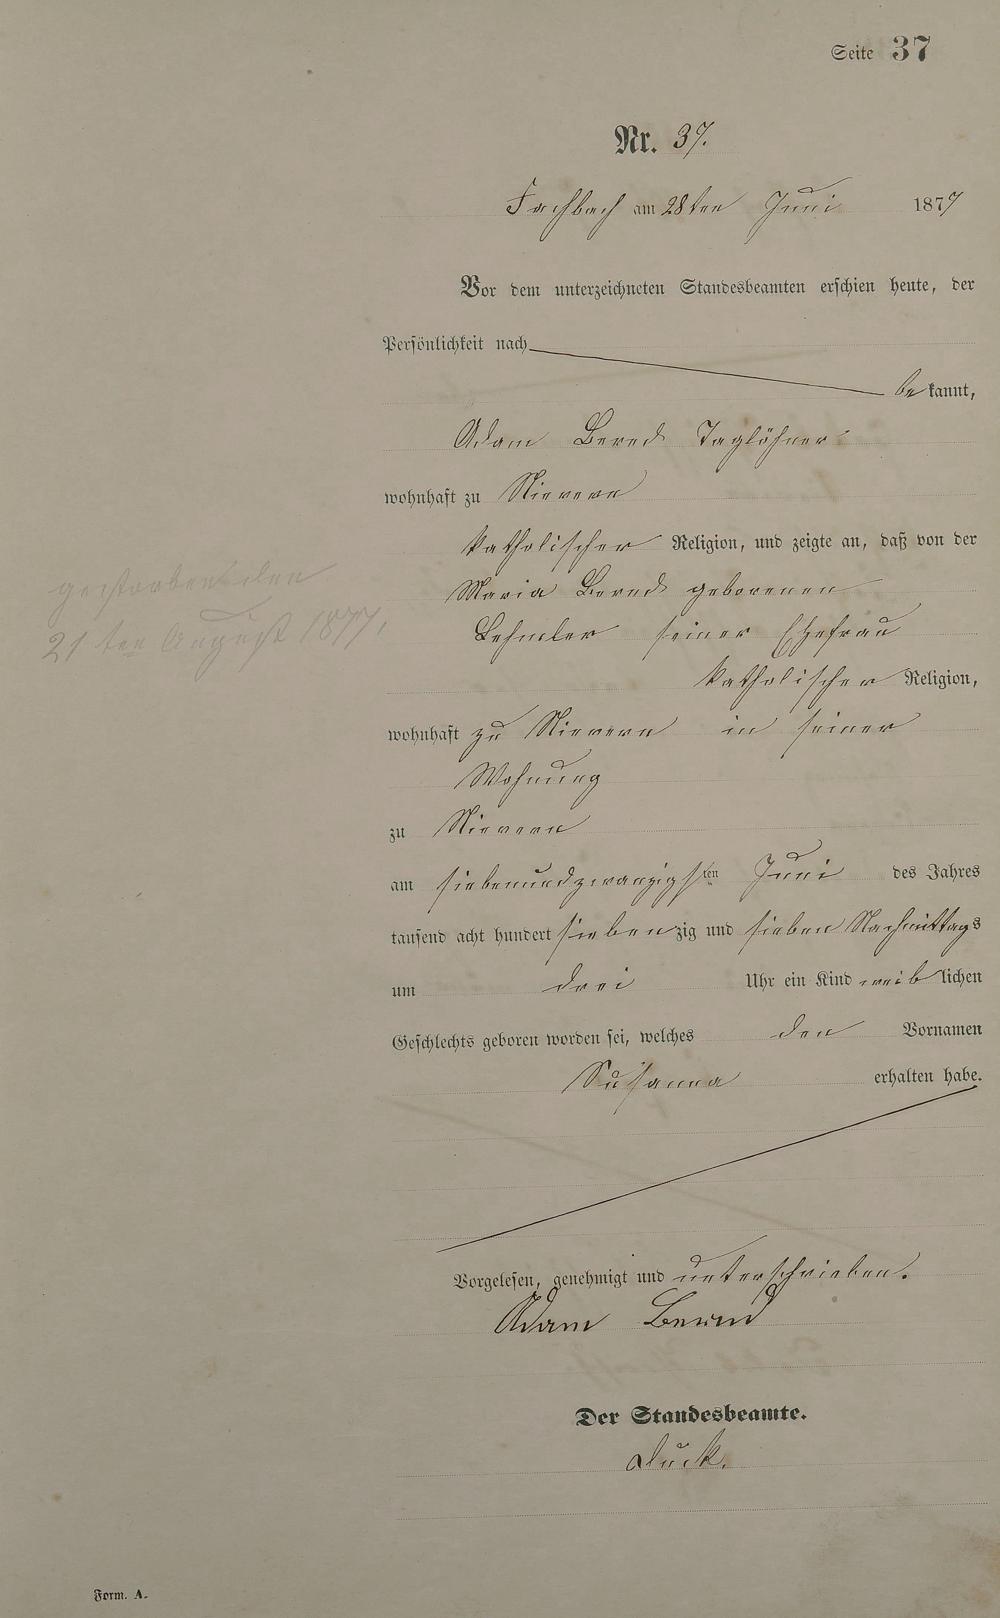 Seite 37
Nr. 37.
Fachbach am 28ten Juni 1877
Vor dem unterzeichneten Standesbeamten erschien heute, der
Persönlichkeit nach
bekannt,
Adam Bernd Taglöhner
wohnhaft zu Nievern
katholischer Religion, und zeigte an, daß von der
Maria Bernd geborenen
Lehmler seiner Ehefrau
katholischer Religion,
wohnhaft zu Nievern in seiner
Wohnung
zu Nievern
am siebenundzwanzigsten Juni des Jahres
tausend acht hundert siebenzig und sieben Nachmittags
um drei Uhr ein Kind weiblichen
Geschlechts geboren worden sei, welches den Vornamen
Susanna erhalten habe.
gestorben den
21ten August 1877.
Vorgelesen, genehmigt und unterschrieben.
Adam Bernd
Der Standesbeamte.
Form. A.